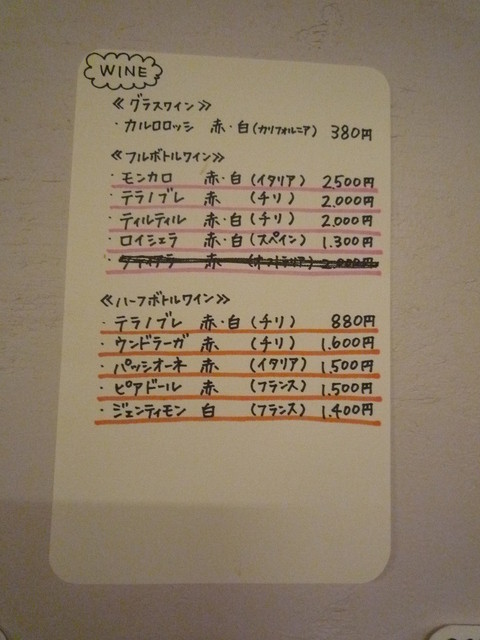 WINE
≪グラスワイン≫
・カルロロッシ 赤・白(カリフォルニア) 380円
≪フルボトルワイン≫
・モンカロ 赤・白(イタリア) 2.500円
・テラノブレ 赤 (チリ) 2.000円
・ティルティル 赤・白(チリ) 2.000円
・ロイシェラ 赤・白(スペイン) 1.300円
赤 2.000円
≪ハーフボトルワイン≫
・テラノブレ 赤・白(チリ) 880円
・ウンドラーガ 赤 (チリ) 1.600円
・パッシオーネ 赤 (イタリア) 1.500円
・ピアドール 赤 (フランス) 1.500円
・ジェンティモン 白 (フランス) 1.400円